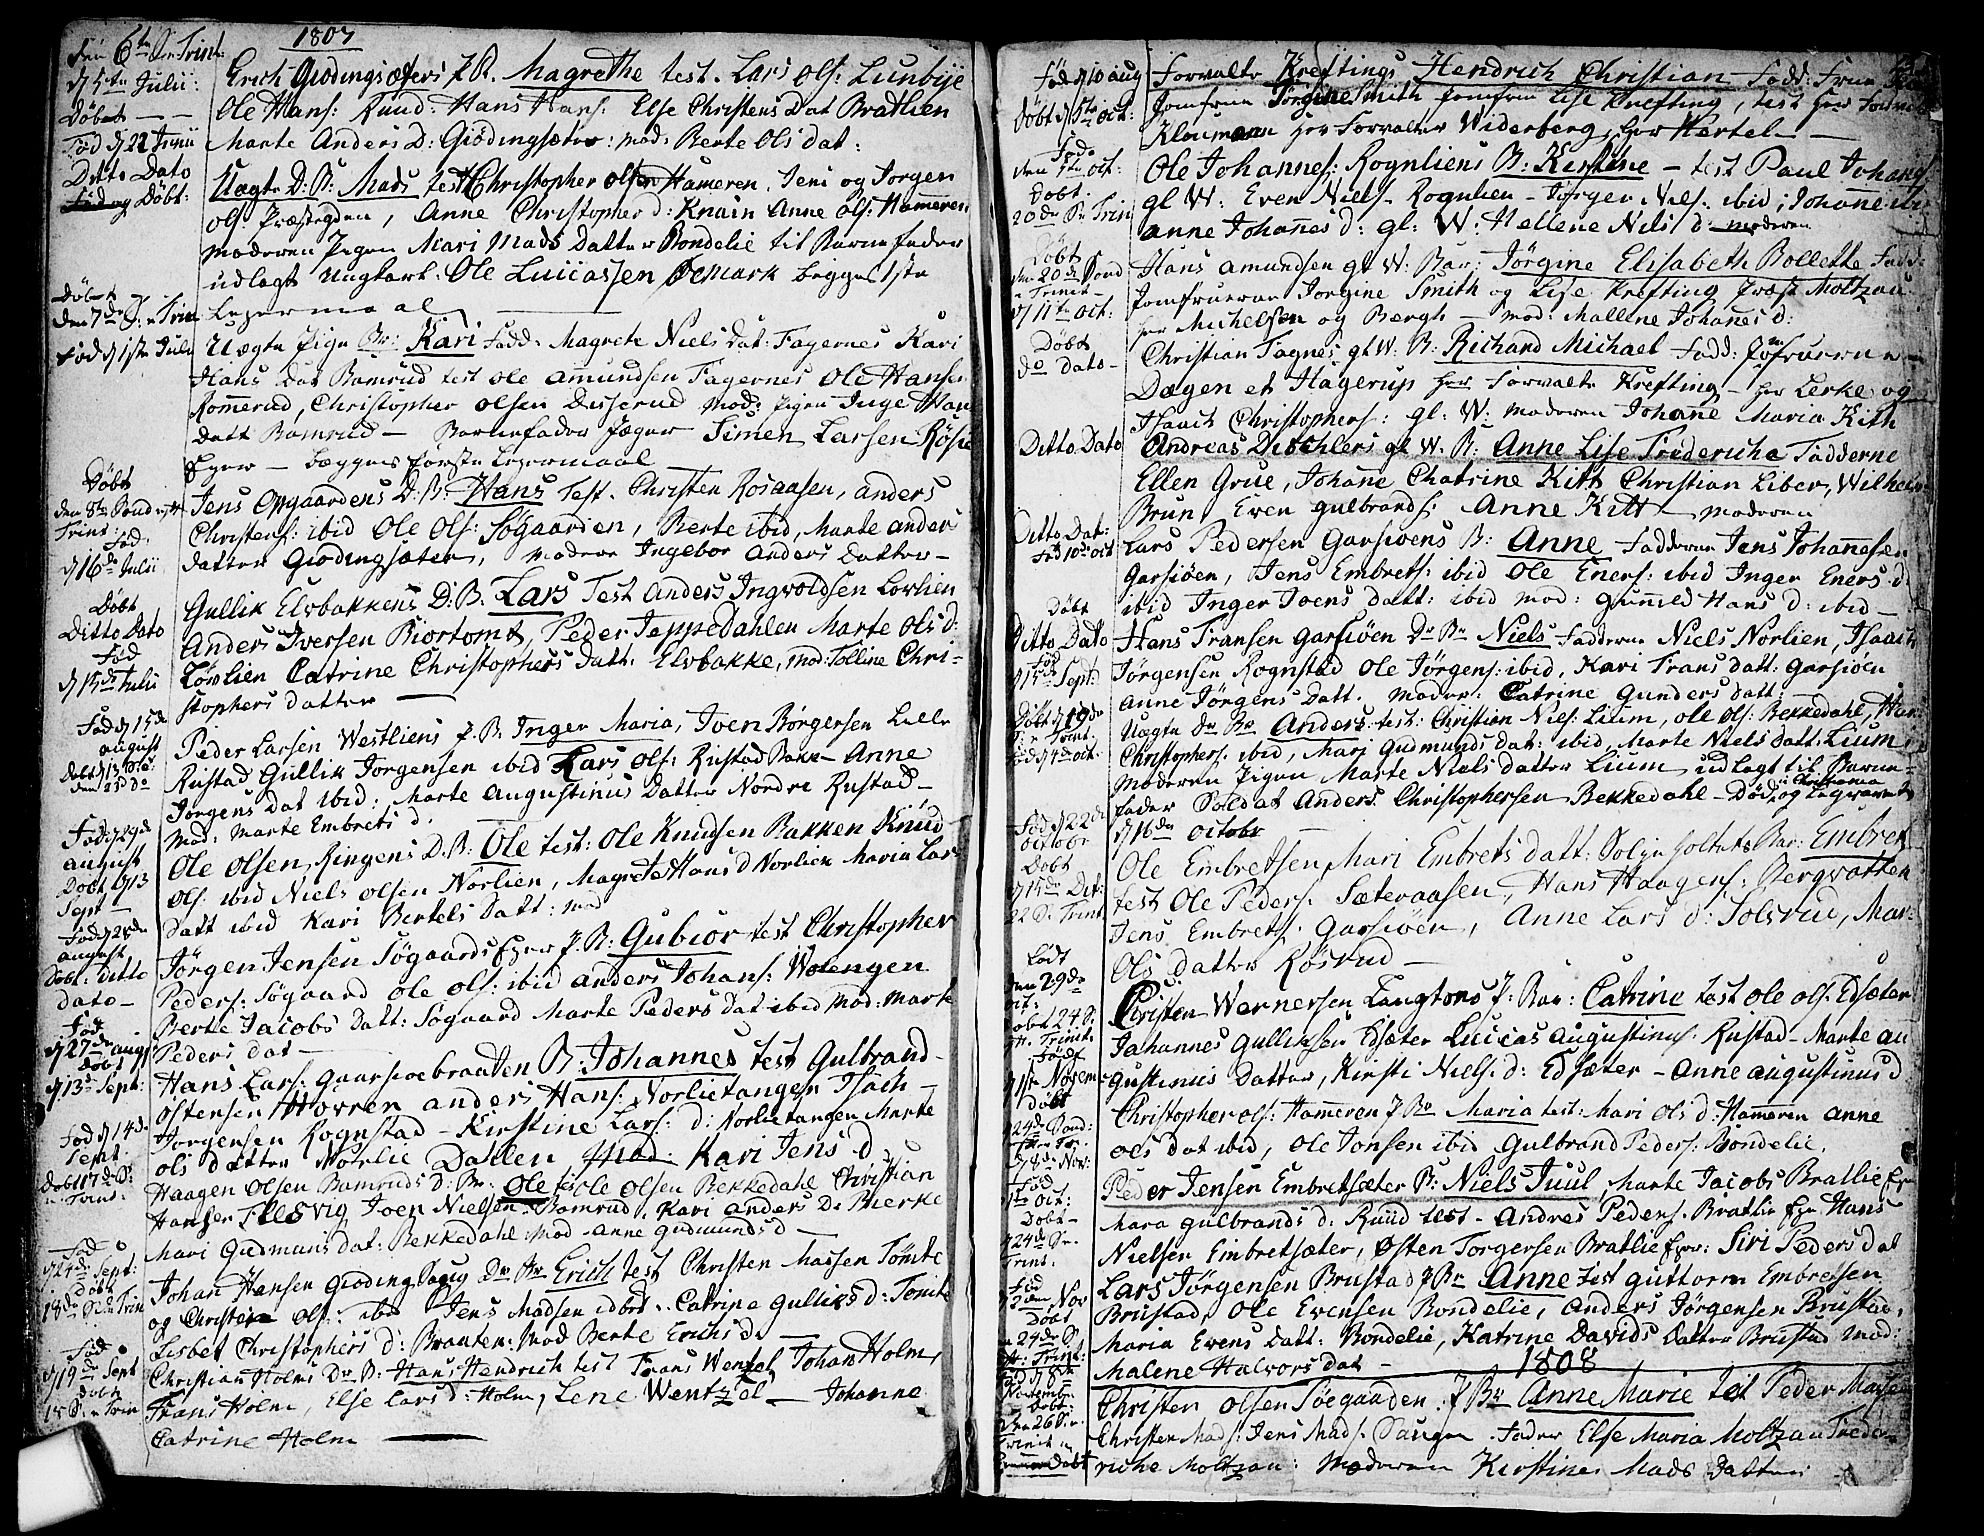 1807
den 6te S. e. Trint:
d 5te Julii:
Døbt
Fød d 22 Junii
Erich Giødingsæters P. B. Magrethe test. Lars Ols: Lunbije
Ole Hans: Ruud: Hans Hans: Else Christens Dat Bratlien
Marte Anders D: Giødingsæter: mod: Berte Ols dat:
Ditto Dato
Fød og Døbt:
Uægte D: B: Mads test Christopher Olsen Hameren, Jens og Jørgen
Ols. Præstegden, Anne Christopher d: Knain Anne Ols: Hameren
Moderen Pigen Mari Mads Datter Bondelie til Barnefader
udlagt Ungkarl: Ole Luccassen Øemark begges 1ste
Leyermaal
Døbt
den 7de S. e. Trin
Fød d 1ste Julii
Uægte Pige Br: Kari Fadd: Magrete Niels Dat: Fagernes Kari
Hans Dat Bamrud test Ole Amundsen Fagernes Ole Hansen
Romerud, Christopher Olsen Disserud Mod: Pigen Inge Hans
Datt Bamrud – Barnefader Jæger Simen Larsen Røste
Eger – begges første Leyermaal
Døbt
den 8de Sond. e.
Trint:
Fød.
d 16de Julii
Jens Opgaardens D: B: Hans Test. Christen Rosaasen, Anders
Christens: ibid Ole Ols: Søgaarden, Berte ibid, Marte Anders
datter Giødingsæter, Modere Ingebor Anders Datter –
Døbt
Ditto Dato
Fød
d 15de Julii
Gullik Elvbakkens D: B. Lars Test Anders Ingvoldsen Lovlien
Anders Iversen Biortomt, Peder Jeppedahlen Marte Ols d:
Løvlien Catrine Christophers Datt. Elvbakke, Mod: Tolline Chri-
stophers datter
Fød d 15de
august
Peder Larsen Westliens P. B. Inger Maria, Joen Børgersen Lille
Rustad Gullik Jørgensen ibid Lars Ols: Rustad Bakk – Anne
Jørgens Dat ibid: Marte Augustinus Datter Nordre Rustad –
Mod: Marte Embrets d:
Fød d 29de
august
Døbt d 13
Sept –
Ole Olsen, Ringens D. B: Ole test: Ole Knudsen Bakken Knud
Ols: ibid Niels Olsen Norlien, Magrete Hans d Norlien Maria Lars
Datt ibid Kari Bertels Datt: Mod
Fød d 28de
august
Døbt: Ditto
Dato –
Jørgen Jensen Søgaards Eyer P. B: Gubior test Christopher
Peders: Søgaard Ole Ols: ibid Anders Johans: Wolengen
Berte Jacobs Datt: Søgaard Marte Peders Dat ibid Mod: Marte
Peders dat –
Fød
d 27de Aug
Døbt
d 13 Sept:
Hans Lars: Gaarsioebraaten B: Johannes test Gulbrand
Ostensen Hovren Anders Hans: Norlietangen Isach –
Jørgensen Rognstad – Kirstine Lars: d: Norlietangen Marte
Ols datter Norlie Dahlen Mod: Kari Jens d
Fød d 14de
Sept:
Døbt 17de S:
e Trint:
Haagen Olsen Bamruds D: Br. Ole test Ole Olsen Bekkedahl Christian
Hansen Flesvig Joen Nielsen Bamrud, Kari Anders D: Bierke
Mari Gudmuns dat: Bekkedahl Mod – Anne Gudmunds d –
Fød
d 4de Sept:
Døbt
18de S: e Trin
Johan Hansen Gioding Saug Dr Br Erich test Christen Massen Tømte
og Christen Ols: ibid Jens Madsen ibid . Catrine Gulliks d: Tømte
Lisbet Christophers d: Braaten: Mod Berte Erichs D. –
Fød
d 19de Sept
Døbt
18 S. e Trin
Christian Holms Dr. B: Hans Hendrich test Frans Wenzel, Johan Holm,
Frans Holm, Else Lars d: Holm, Lene Wentzel – Johanne
Catrine Holm
Fød d 10 Aug
Døbt d 5te Oct:
Forvalter Kreftings Hendrich Christian Fadd: Fruen
Jomfrue Jørgine Smith Jomfrue Lise Krefting, test Her Forvalter
Kloumann Her Forvalter Widerberg, Her Hertel –
Født
den 5te Oct:
Døbt.
20de S. e Trin
Ole Johannes: Rognliens B: Kirstine – test Paul Johans:
gl W: Even Niels. Rognlien – Jørgen Niels. ibid; Johanne
Anne Johannes d: gl: W: Hellene Nils d moderen
Døbt
den 20de Sond
e Trinit –
d 11te Oct:
Hans Amundsen gl W: Bar: Jørgine Elisabeth Bollette Fadd:
Jomfruerne Jørgine Smith og Lise Krefting Præst Moltzau
Her Michelsen og Bergh – Mod: Mallene Johannes d:
Døbt
do Dato –
Christian Fagnes gl W: B: Richard Michael Fadd: Jomfruerne
Dægen et Hagerup Her Forvalter Krefting – Her Lerke og
Isaach Christophers: gl: W: Moderen Johane Maria Kith
Ditto Dato
Andreas Dischlers gl W. B: Anne Lise Frederiche Fadderne
Ellen Grue, Johane Chatrine Kitt Christian Liber, Wilhelm
Brun, Even Gulbrands: Anne Kitt – moderen
Ditto Dat:
Fød 10de Oct
Lars Pedersen Garsioens B: Anne Fadderne Jens Johannesen
Garsiøen, Jens Embrets: ibid Ole Eners: ibid Inger Eners d:
ibid Inger Joens Datt: ibid Mod: Gunild Hans d: ibid –
Døbt
Ditto Dato
Fød
d 15de Sept:
Hans Fransen Garsiøen Dr Br Niels Fadderne Niels Norlien, Isaach
Jørgensen Rognstad Ole Jørgens: ibid, Kari Frans Datt: Garsiøen
Anne Jørgens Datt. Moder: Catrine Gunders datt:
Døbt d 19de
S. e Trint.
Fød d 4de Oct.
Uægte Dr Br Anders test: Christian Niels: Lium, Ole Ols: Bekkedahl, Hans
Christophers. ibid, Mari Gudmunds Dat: ibid, Marte Niels Datt: Lium
Moderen Pigen Marte Niels datter Lium, udlagt til Barne-
fader Soldat Anders Christophersen Bekkedahl – Død i Christiania og begravet
d 16de Octobr
Fød d 22de
Octobr
Døbt
d 15de Dit:
22 S. Trint
Ole Embretsen Mari Embrets datt: Bar: Embret
test Ole Peders: Sæteraasen, Hans Haagens: Bergvatten
Jens Embrets: Garsiøen, Anne Lars d: Solsrud, Mar:
Ols. Datter Røsrud –
Født
den 29de
Oct:
Døbt 24 S.
e. Trinit.
Christen Wernersen Langtons P. Bar: Catrine test Ole Ols: Edsæter
Johannes Gulliksen Edsæter Luccas Augustinus. Rustad – Marte Au
gustinus Datter, Kirsti Niels: d: Edsæter – Anne Augustinus d
Født
d 1ste Novem
Døbt
d 24de Sond:
Christopher Ols: Hameren P Br Maria test: Mari Ols d: Hameren Anne
Ols dat ibid, Ole Jonsen ibid Gulbrand Peders: Bondelie.
Fød
Døbt –
d 24de S. e.
Trint.
Peder Jensen Embretsæter B: Niels Juul, Marte Jacobs Bratlie Eyr
Mara Gulbrands d: Ruud test – Andres Peders. Bratlie Eyr Hans
Nielsen Embretsæter, Østen Torgersen Bratlie Eyer: Siri Peders dat
Fød
d 2den Nov
Døbt
d 24de S.
e: Trint:
Lars Jørgensen Brustad P Br Anne test Guttorm Embretsen
Brustad, Ole Evensen Bondelie, Anders Jørgensen Brustad,
Maria Evens Datt: Bondelie, Katrine Davids Datter Brustad Mod:
Malene Halvors Dat –
1808
Fød d 8de
Novembr
– Døbt:
den 26 S. e.
Trinit
Christen Olsen Søegaarden. P Br Anne Marie test Peder Massen
Christen Mads: Jens Mads. Saugen . Fader Else Maria Moltzau Frede-
riche Moltzau: Moderen Kirstine Mads Datter